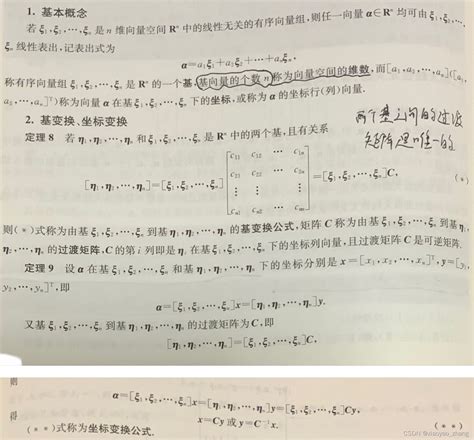 1. 基本概念
若 ξ₁,ξ₂,⋯,ξₙ 是 n 维向量空间 Rⁿ 中的线性无关的有序向量组,则任一向量 α∈Rⁿ 均可由 ξ₁,ξ₂,⋯,
ξₙ 线性表出,记表出式为
α=a₁ξ₁+a₂ξ₂+⋯+aₙξₙ,
称有序向量组 ξ₁,ξ₂,⋯,ξₙ 是 Rⁿ 的一个基,基向量的个数 n 称为向量空间的维数,而[a₁,a₂,⋯,aₙ]([a₁,
a₂,⋯,aₙ]ᵀ)称为向量 α 在基 ξ₁,ξ₂,⋯,ξₙ 下的坐标,或称为 α 的坐标行(列)向量.
2. 基变换、坐标变换
两个基之间的过渡
矩阵是唯一的
定理 8 若 η₁,η₂,⋯,ηₙ 和 ξ₁,ξ₂,⋯,ξₙ 是 Rⁿ 中的两个基,且有关系
[η₁,η₂,⋯,ηₙ]=[ξ₁,ξ₂,⋯,ξₙ][c₁₁ c₁₂ ⋯ c₁ₙ
c₂₁ c₂₂ ⋯ c₂ₙ
⋮ ⋮ ⋮
cₙ₁ cₙ₂ ⋯ cₙₙ]=[ξ₁,ξ₂,⋯,ξₙ]C, (*)
则(*)式称为由基 ξ₁,ξ₂,⋯,ξₙ 到基 η₁,η₂,⋯,ηₙ 的基变换公式,矩阵 C 称为由基 ξ₁,ξ₂,⋯,ξₙ 到基 η₁,
η₂,⋯,ηₙ 的过渡矩阵,C 的第 i 列即是 ηᵢ 在基 ξ₁,ξ₂,⋯,ξₙ 下的坐标列向量,且过渡矩阵 C 是可逆矩阵.
定理 9 设 α 在基 ξ₁,ξ₂,⋯,ξₙ 和基 η₁,η₂,⋯,ηₙ 下的坐标分别是 x=[x₁,x₂,⋯,xₙ]ᵀ,y=[y₁,
y₂,⋯,yₙ]ᵀ,即
α=[ξ₁,ξ₂,⋯,ξₙ]x=[η₁,η₂,⋯,ηₙ]y.
又基 ξ₁,ξ₂,⋯,ξₙ 到基 η₁,η₂,⋯,ηₙ 的过渡矩阵为 C,即
[η₁,η₂,⋯,ηₙ]=[ξ₁,ξ₂,⋯,ξₙ]C,
则
α=[ξ₁,ξ₂,⋯,ξₙ]x=[η₁,η₂,⋯,ηₙ]y=[ξ₁,ξ₂,⋯,ξₙ]Cy,
得 x=Cy 或 y=C⁻¹x. (**)
(**)式称为坐标变换公式.